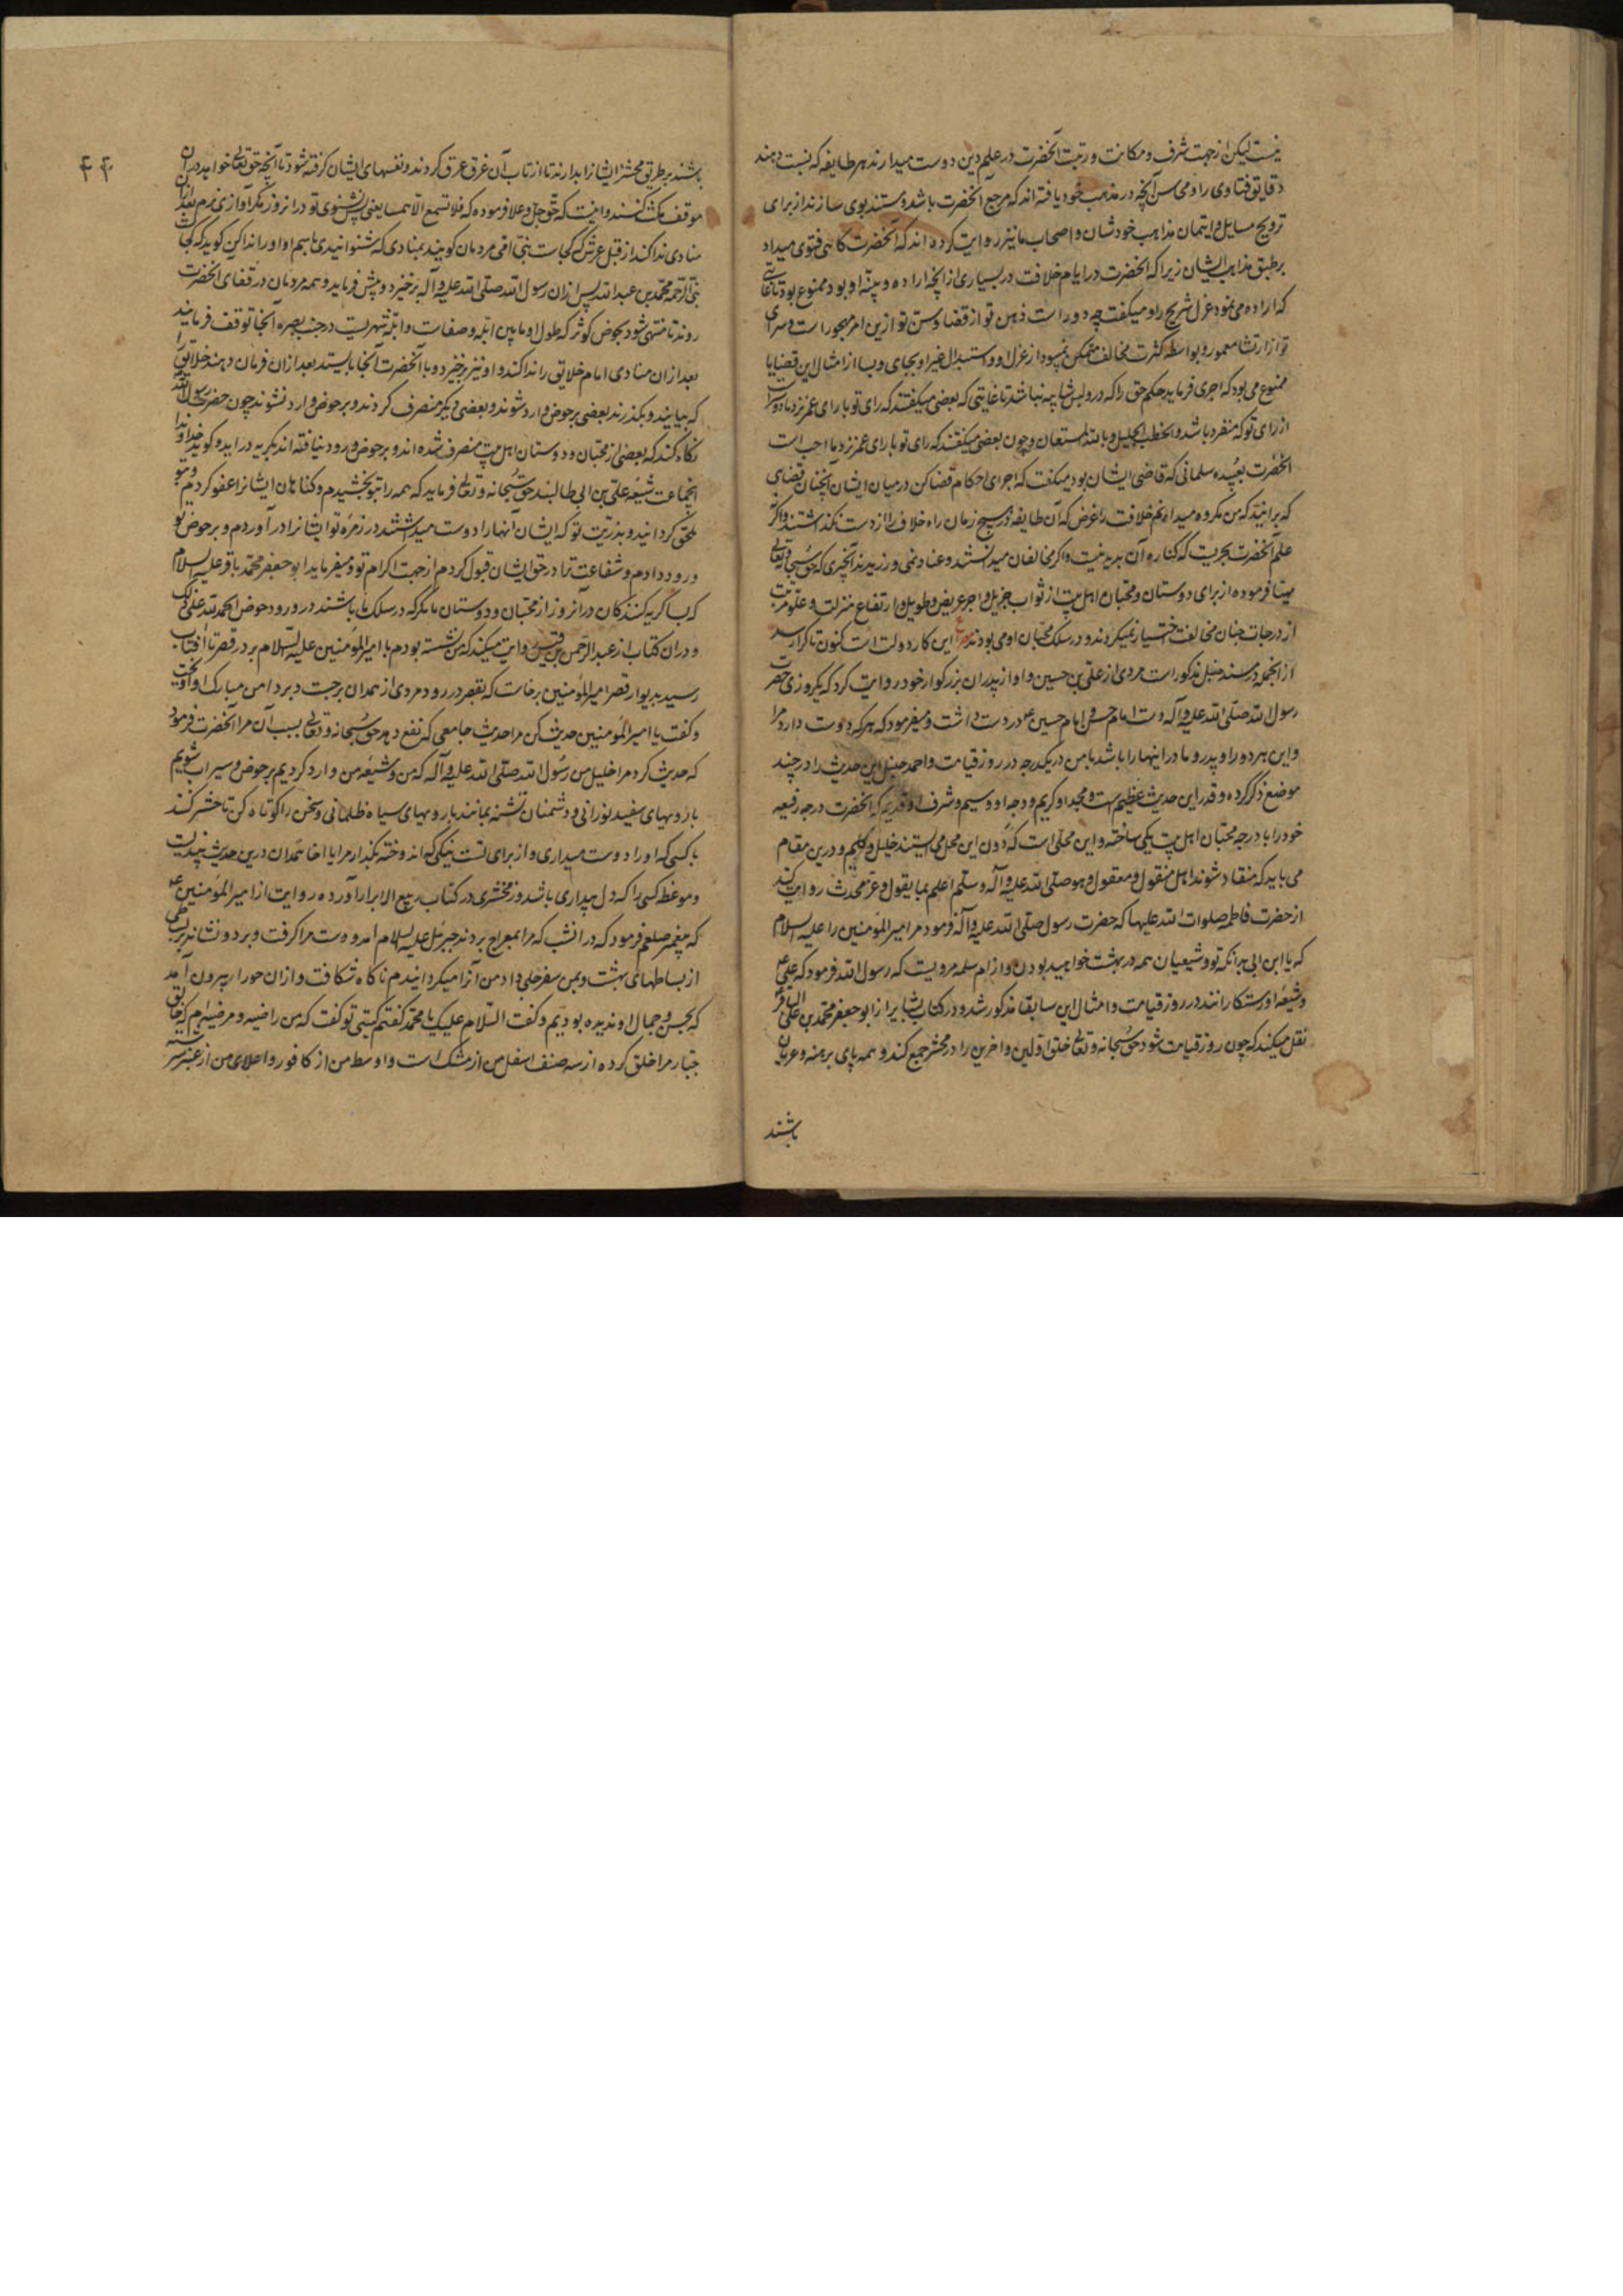 نیست لیکن از جهت شرف و مکانت و رتبت آنحضرت در علم دین دوست میدارند هر طایفه که نسبت دهند
دقایق فتاوی را و محاسن آنچه در مذهب خود یافته‌اند که مرجع آنحضرت باشد و مستند بوی سازند از برای
ترویج مسایل و ایتمان مذاهب خودشان و اصحاب ما نیز روایت کرده‌اند که آنحضرت کاهی فتوی میداد
بر طبق مذاهب ایشان زیرا که آنحضرت در ایام خلافت در بسیاری از آنچه اراده و او بود ممنوع بود تا غایتی
که اراده می‌نمود عزل شریح را و میکفت چه دور است ذهن تو از قضا و سن تو ازین امر مهجور است و سرای
تو از معمور و بواسطه کثرت مخالف متمکن نمیبود از عزل او و استبدال غیر او بجای وی و بسا از امثال این قضایا
ممنوع می بود که اجری فرماید حکم حق را که در و لبس شایبه نباشد تا غایتی که بعضی میکفتند که رای تو با رای عمر نزد ما دوستر است
از رای تو که منفرد باشد و الخطب الجلیل و بالله المستعان و چون بعضی میکفتند که رای تو با رای عمر نزد ما احب است
آنحضرت بعبیده سلمانی که قاضی ایشان بود میکفت که اجرای احکام قضا کن در میان ایشان آنچنان قضای
که برانید که من مکروه میدارم خلافت را غرض که آن طایفه در هیچ زمان راه خلاف را از دست نکذاشتند و اگر
علم آنحضرت بحریت که کناره آن پدید نیست و اکر مخالفان میدانستند و عناد نمی ورزیدند آنچیزی که حق سبحانه و تعالی
مهیا فرموده از برای دوستان و محبان اهل بیت از ثواب جزیل و اجر عریض و طویل و ارتفاع منزلت و علو مرتبت
از درجات جنان مخالفت اختیار نمیکردند و در سلک محبان او می بودند ع این کار دولت است کنون تا کرا رسد
از انجمله در مسند حنبل مذکور است مروی از علی بن حسین و او از پدران بزرکوار خود روایت کرد که یکروزی حضرت
رسول الله صلی الله علیه و آله دست امام حسن و امام حسین ع در دست داشت و میفرمود که هر که دوست دارد مرا
و این هر دو را و پدر و مادر اینها را با شد با من در یکدرجه در روز قیامت و احمد حنبل این حدیث را در چند
موضع ذکر کرده و قدر این حدیث عظیم است و مجد او کریم و وجه او وسیم و شرف او قدیم که آنحضرت درجه رفیعه
خود را با درجه محبان اهل بیت یکی ساخته و این محلی است که دون این محل می ایستند خلیل و کلیم و درین مقام
می باید که منقاد شوند اهل منقول و معقول و هو صلی الله علیه و آله و سلم اعلم بما یقول و عز محدث روایت کند
از حضرت فاطمه صلوات الله علیها که حضرت رسول صلی الله علیه و آله فرمود مر امیر المؤمنین را علیه السلام
که یا ابن ابی بدانکه تو و شیعیان همه در بهشت خواهید بودن و از ام سلمه مرویست که رسول الله فرمود که علی ع
و شیعه او رستکارانند در روز قیامت و امثال این سابقا مذکور شد و در کتاب بشایر از ابو جعفر محمد بن علی الباقر
نقل میکند که چون روز قیامت شود حق سبحانه و تعالی خلق اولین و اخرین را در محشر جمع کند و همه پای برهنه و عریان
باشند
۴۴۰
باشند بر طریق محشر ایشانرا بدارند تا از تاب آن غرق عرق کردند و نفسهای ایشان کرفته شود تا آنچه حق تعالی خواهد در آن
موقف مکث کنند و اینست که حق جل و علا فرموده که فلا تسمع الا همسا یعنی پس نشنوی تو در انروز مکر آوازی نرم بعد از آن
منادی ندا کند از قبل عرش که کجاست نبی امی مردمان کویند بمنادی که شنوانیدی ما باسم او او را ندا کن کوید که کجاست
نبی الرحمه محمد بن عبد الله پس ازان رسول الله صلی الله علیه و آله برخیزد و پیش فرماید و همه مردمان در قفای آنحضرت
روند تا منتهی شود بحوض کوثر که طول او مابین ابله و صفات و ابله شهریست در جنب بصره آنجا توقف فرمایند
بعد از ان منادی امام خلایق را ندا کند و او نیز برخیزد و با آنحضرت آنجا بایستد بعد ازان فرمان دهند خلایق را
که بیایند و بکذرند بعضی بر حوض وارد شوند و بعضی دیگر منصرف کردند و بر حوض وارد نشوند چون حضرت رسول الله
نکاه کند که بعضی از محبان و دوستان اهل بیت منصرف شده‌اند و بر حوض ورود نیافته‌اند بکریه دراید و کوید خداوندا
اینجماعت شیعه علی بن ابی طالبند حق سبحانه و تعالی فرماید که همه را بتو بخشیدم و کناهان ایشانرا عفو کردم و بتو
ملحق کردانید و بذریت تو که ایشان آنها را دوست میداشتند در زمره تو ایشانرا در آوردم و بر حوض تو
ورود دادم و شفاعت ترا در حق ایشان قبول کردم از جهت اکرام تو و میفرماید ابو جعفر محمد باقر علیه السلام
که بسا کریه کنندکان در آنروز از محبان و دوستان ما مکر که در سلک ما باشند در ورود حوض الحمد لله علی ذلک
و دران کتاب از عبد الرحمن بن قیس روایت میکند که من نشسته بودم با امیر المؤمنین علیه السلام بر در قصر تا آفتاب
رسید بدیوار قصر امیر المؤمنین برخاست که بقصر در رود مردی از همدان برجست و بر دامن مبارک او آویخت
و کفت یا امیر المؤمنین حدیث کن مرا حدیث جامعی که نفع دهد حق سبحانه و تعالی بسبب آن مرا آنحضرت فرمود
که حدیث کرد مرا خلیل من رسول الله صلی الله علیه و آله که من و شیعه من وارد کردیم بر حوض و سیراب شویم
با رویهای سفید نورانی و دشمنان تشنه بمانند با رویهای سیاه ظلمانی و سخن را کوتاه کن تا حشر کنند
با کسی که او را دوست میداری و از برای تست نیکی که اندوخته بکذار مرا یا اخا همدان درین حدیث پندیست
و موعظه کسی را که دل بیداری باشد و زمخشری در کتاب ربیع الابرار آورده روایت از امیر المؤمنین ع
که پیغمبر صلعم فرمود که در انشب که مرا بمعراج بردند جبرئیل علیه السلام امد و دست مرا کرفت و برد و نشاند بر بساطی
از بساطهای بهشت و بمن سفرجلی داد من آنرا میکردانیدم ناکاه شکافت و ازان حورا بیرون آمد
که بحسن و جمال او ندیده بودیم و کفت السلام علیک یا محمد کفتم کیستی تو کفت که من راضیه و مرضیه‌ام که خالق
جبار مرا خلق کرده از سه صنف اسفل من از مشک است و اوسط من از کافور و اعلای من از عنبر